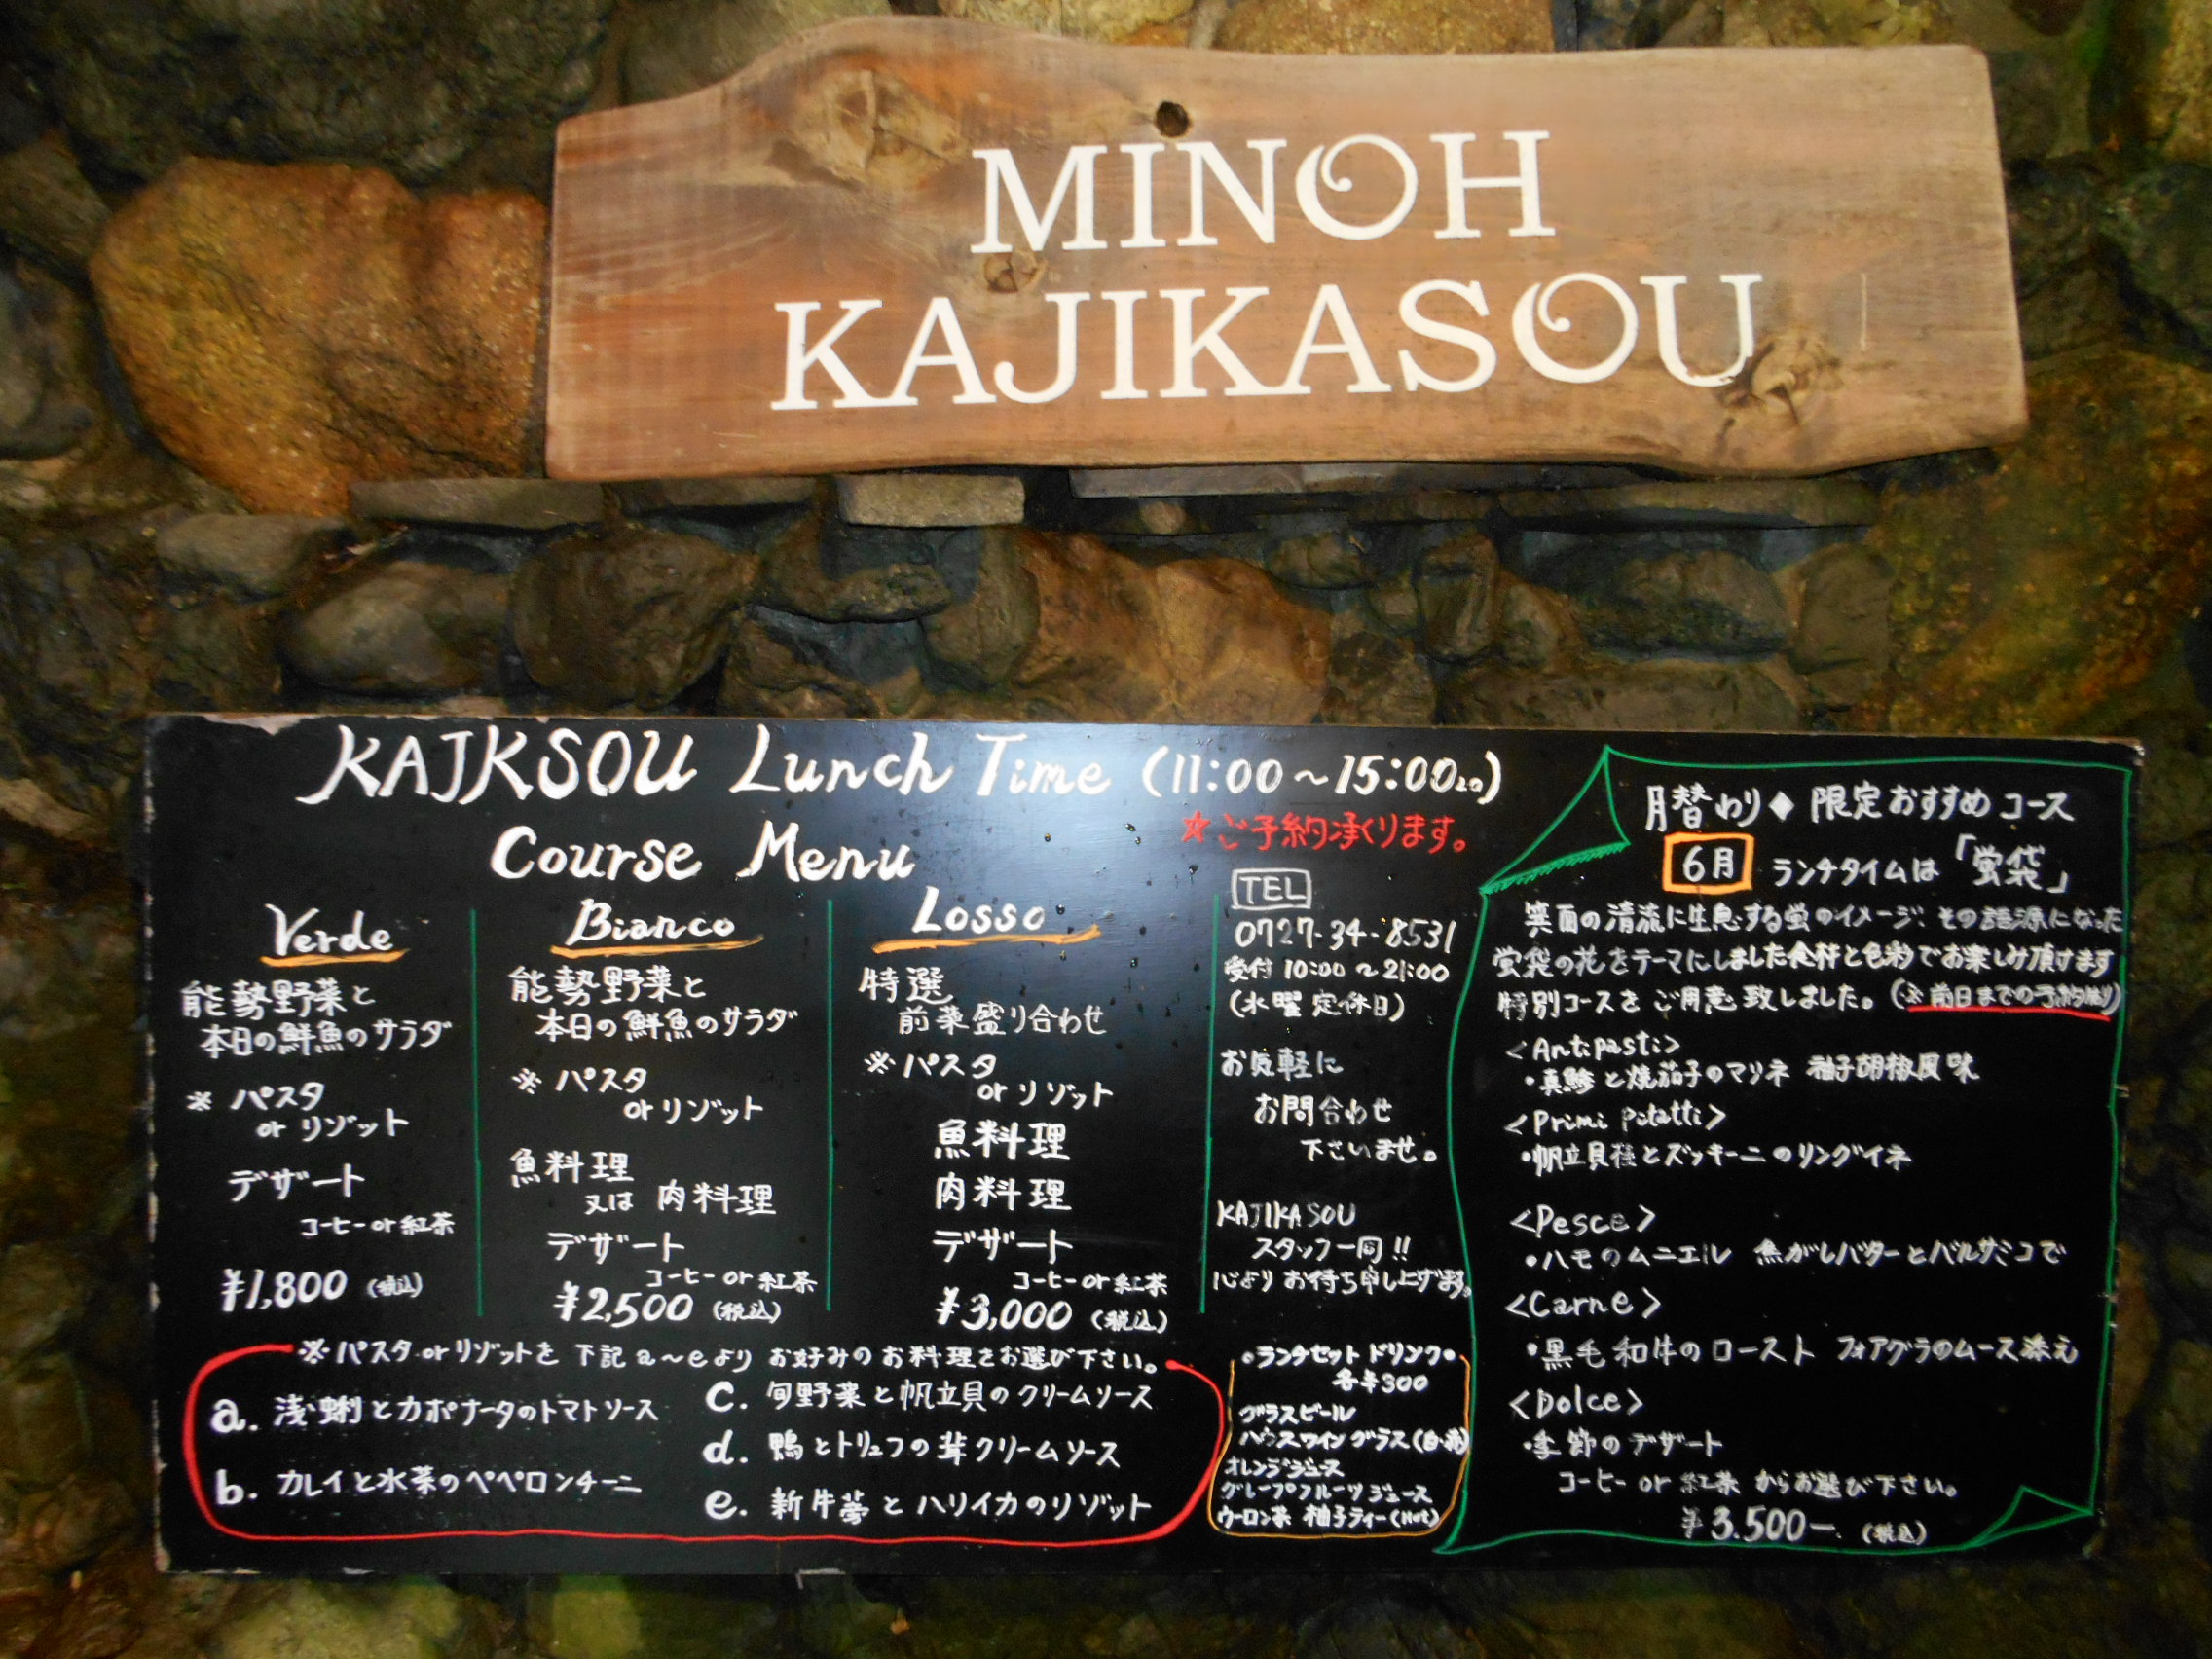 MINOH
KAJIKASOU
KAJKSOU Lunch Time (11:00~15:00)
Course Menu
☆ご予約承ります。
Verde
能勢野菜と
本日の鮮魚のサラダ
※パスタ
orリゾット
デザート
コーヒーor紅茶
¥1,800 (税込)
Bianco
能勢野菜と
本日の鮮魚のサラダ
※パスタ
orリゾット
魚料理
又は 肉料理
デザート
コーヒーor紅茶
¥2,500 (税込)
Losso
特選
前菜盛り合わせ
※パスタ
orリゾット
魚料理
肉料理
デザート
コーヒーor紅茶
¥3,000 (税込)
TEL
0727-34-8531
受付 10:00~21:00
(水曜定休日)
お気軽に
お問合わせ
下さいませ。
KAJIKASOU
スタッフ一同!!
心よりお待ち申し上げます。
※パスタorリゾットを 下記a~eより お好みのお料理をお選び下さい。
a. 浅蜊とカポナータのトマトソース
b. カレイと水菜のペペロンチーニ
c. 旬野菜と帆立貝のクリームソース
d. 鴨とトリュフの茸クリームソース
e. 新牛蒡とハリイカのリゾット
・ランチセットドリンク・
各¥300
グラスビール
ハウスワイングラス(白・赤)
オレンジジュース
グレープフルーツジュース
ウーロン茶 柚子ティー(Hot)
月替わり◆限定おすすめコース
6月 ランチタイムは「蛍袋」
箕面の清流に生息する蛍のイメージ、その語源になった
蛍袋の花をテーマにしました食材と色彩でお楽しみ頂けます
特別コースをご用意致しました。(※前日までの予約制)
<Antipasti>
・真鯵と焼茄子のマリネ 柚子胡椒風味
<Primi piatti>
・帆立貝柱とズッキーニのリングイネ
<Pesce>
・ハモのムニエル 焦がしバターとバルサミコで
<Carne>
・黒毛和牛のロースト フォアグラのムース添え
<Dolce>
・季節のデザート
コーヒー or 紅茶 からお選び下さい。
¥3.500ー. (税込)